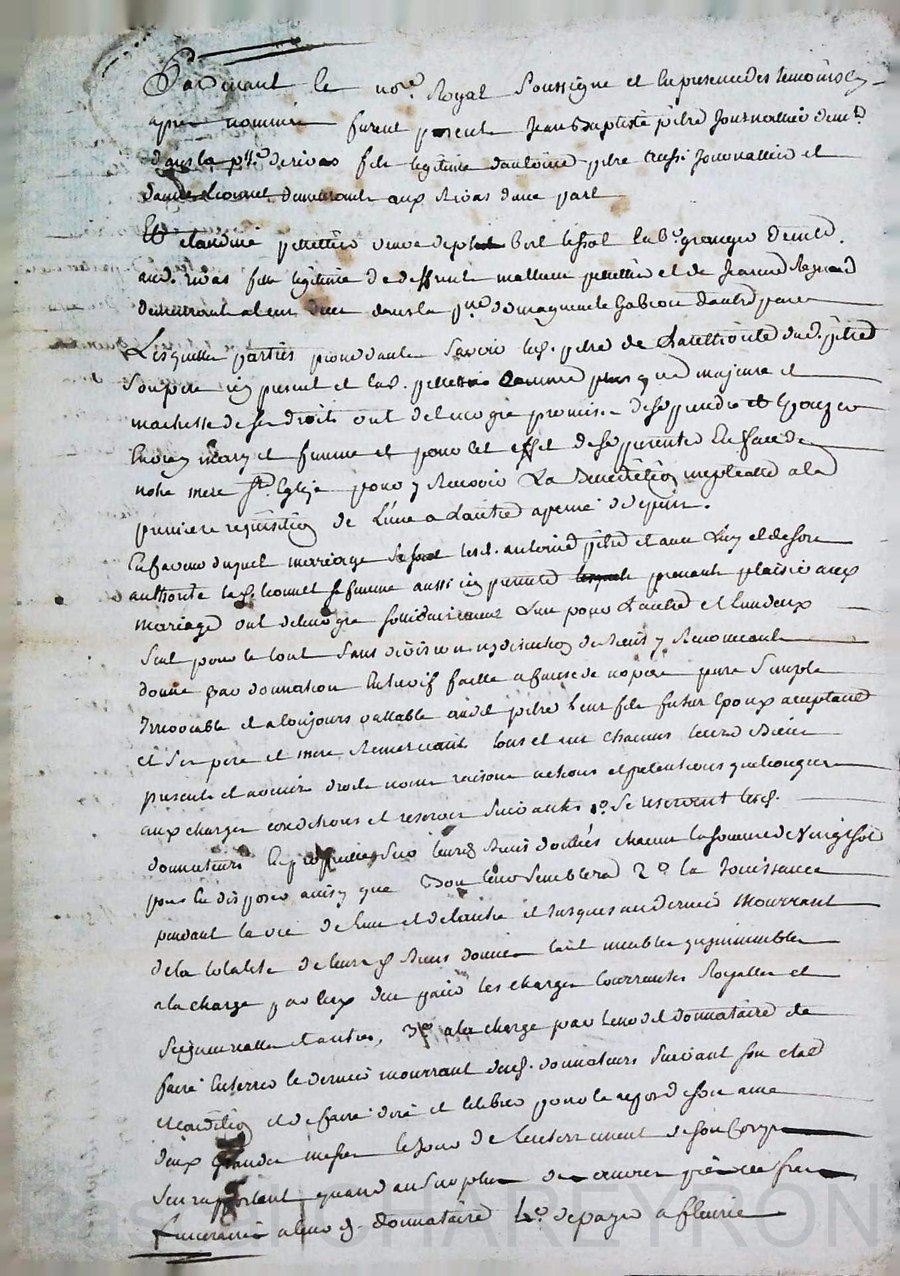 Pardevant le no.re Royal Soussigné et en presence des temoins cy
apres nommés furent presents Jean Baptiste pitre Journallier dem.t
dans la p.sse de rivas fils legitime d'antoine pitre aussi Journallier et
d'anne Lionnet demeurants aux Rivas d'une part
Et claudine pelletier veuve de
aud. rivas fille legitime de deffunt mathieu pelletier et de Jeanne
demeurant dans la p.sse de magnieu le Gabion d'autre part
Lesquelles parties procedantes Savoir led. pitre de L'authorité dud. pitre
Son pere icy present et lad. pelletier comme plus que majeure et
maitresse de ses droits ont de leur gré promis de se prendre et Epouzer
En vray mary et femme et pour cet effet de se presenter En face de
notre mere S.te Eglize pour y Recevoir La Benediction nuptialle a la
premiere requisition de L'une a L'autre a peine de depens.
En faveur duquel mariage led. antoine pitre et avec Luy et de son
authorité lad. Lionnet sa femme aussi icy presente prenant plaisir aud
mariage ont de leur gré solidairement L'un pour L'autre et L'un deux
Seul pour le tout Sans division ny discution de Biens y Renonceant
donné par donnation Entre vifs faite a cause de nopces pure Simple
Irrevocable et a toujours vallable aud. pitre Leur fils futur Epoux acceptant
et Ses pere et mere Remerciant tous et un chacuns Leurs Biens
presents et avenir droits noms raisons actions et pretentions quelconques
aux charges conditions et reserves Suivantes 1.o Se reservent lesd.
donnateurs Sur leursd. Biens donnés chacun la somme de Vingt sol
pour En disposer ainsy que Bon leur Semblera 2.o la Jouissance
pendant la vie de L'un et de L'autre et Jusques au dernier Mourrant
de la totalité de leursd. Biens donnés tant meubles qu'immeubles
a la charge par Eux d'en paier les charges Courrantes Royalles et
Seigneurialles et autres, 3.o a la charge par Leurd. donnataire de
faire Enterrer le dernier mourrant desd. donnateurs Suivant Son etat
et condition et de faire dire et celebrer pour le repos de Son ame
deux grandes messes le Jour de L'enterrement de Son Corps
S'en rapportant quand au Surplus des œuvres pies et frais
funeraires a leurd. donnataire 4.o de payer a fleurie
Pascal CHAREYRON